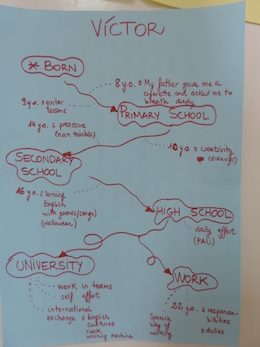 VÍCTOR
* BORN
8 y.o. = My father gave me a
cigarette and asked me to
breath deeply
9 y.o. = guitar
lessons
PRIMARY SCHOOL
14 y.o. =
(nun teacher)
10 y.o. = creativity
(drawings)
SECONDARY
SCHOOL
16 y.o. = learning
English
with games/songs
(Halloween)
HIGH SCHOOL
daily effort
(PAU)
UNIVERSITY
WORK
work in teams
self effort
international
exchange = English
cultures
cook
washing machine
Spanish
way of
working
22 y.o. = responsi-
bilities
= duties